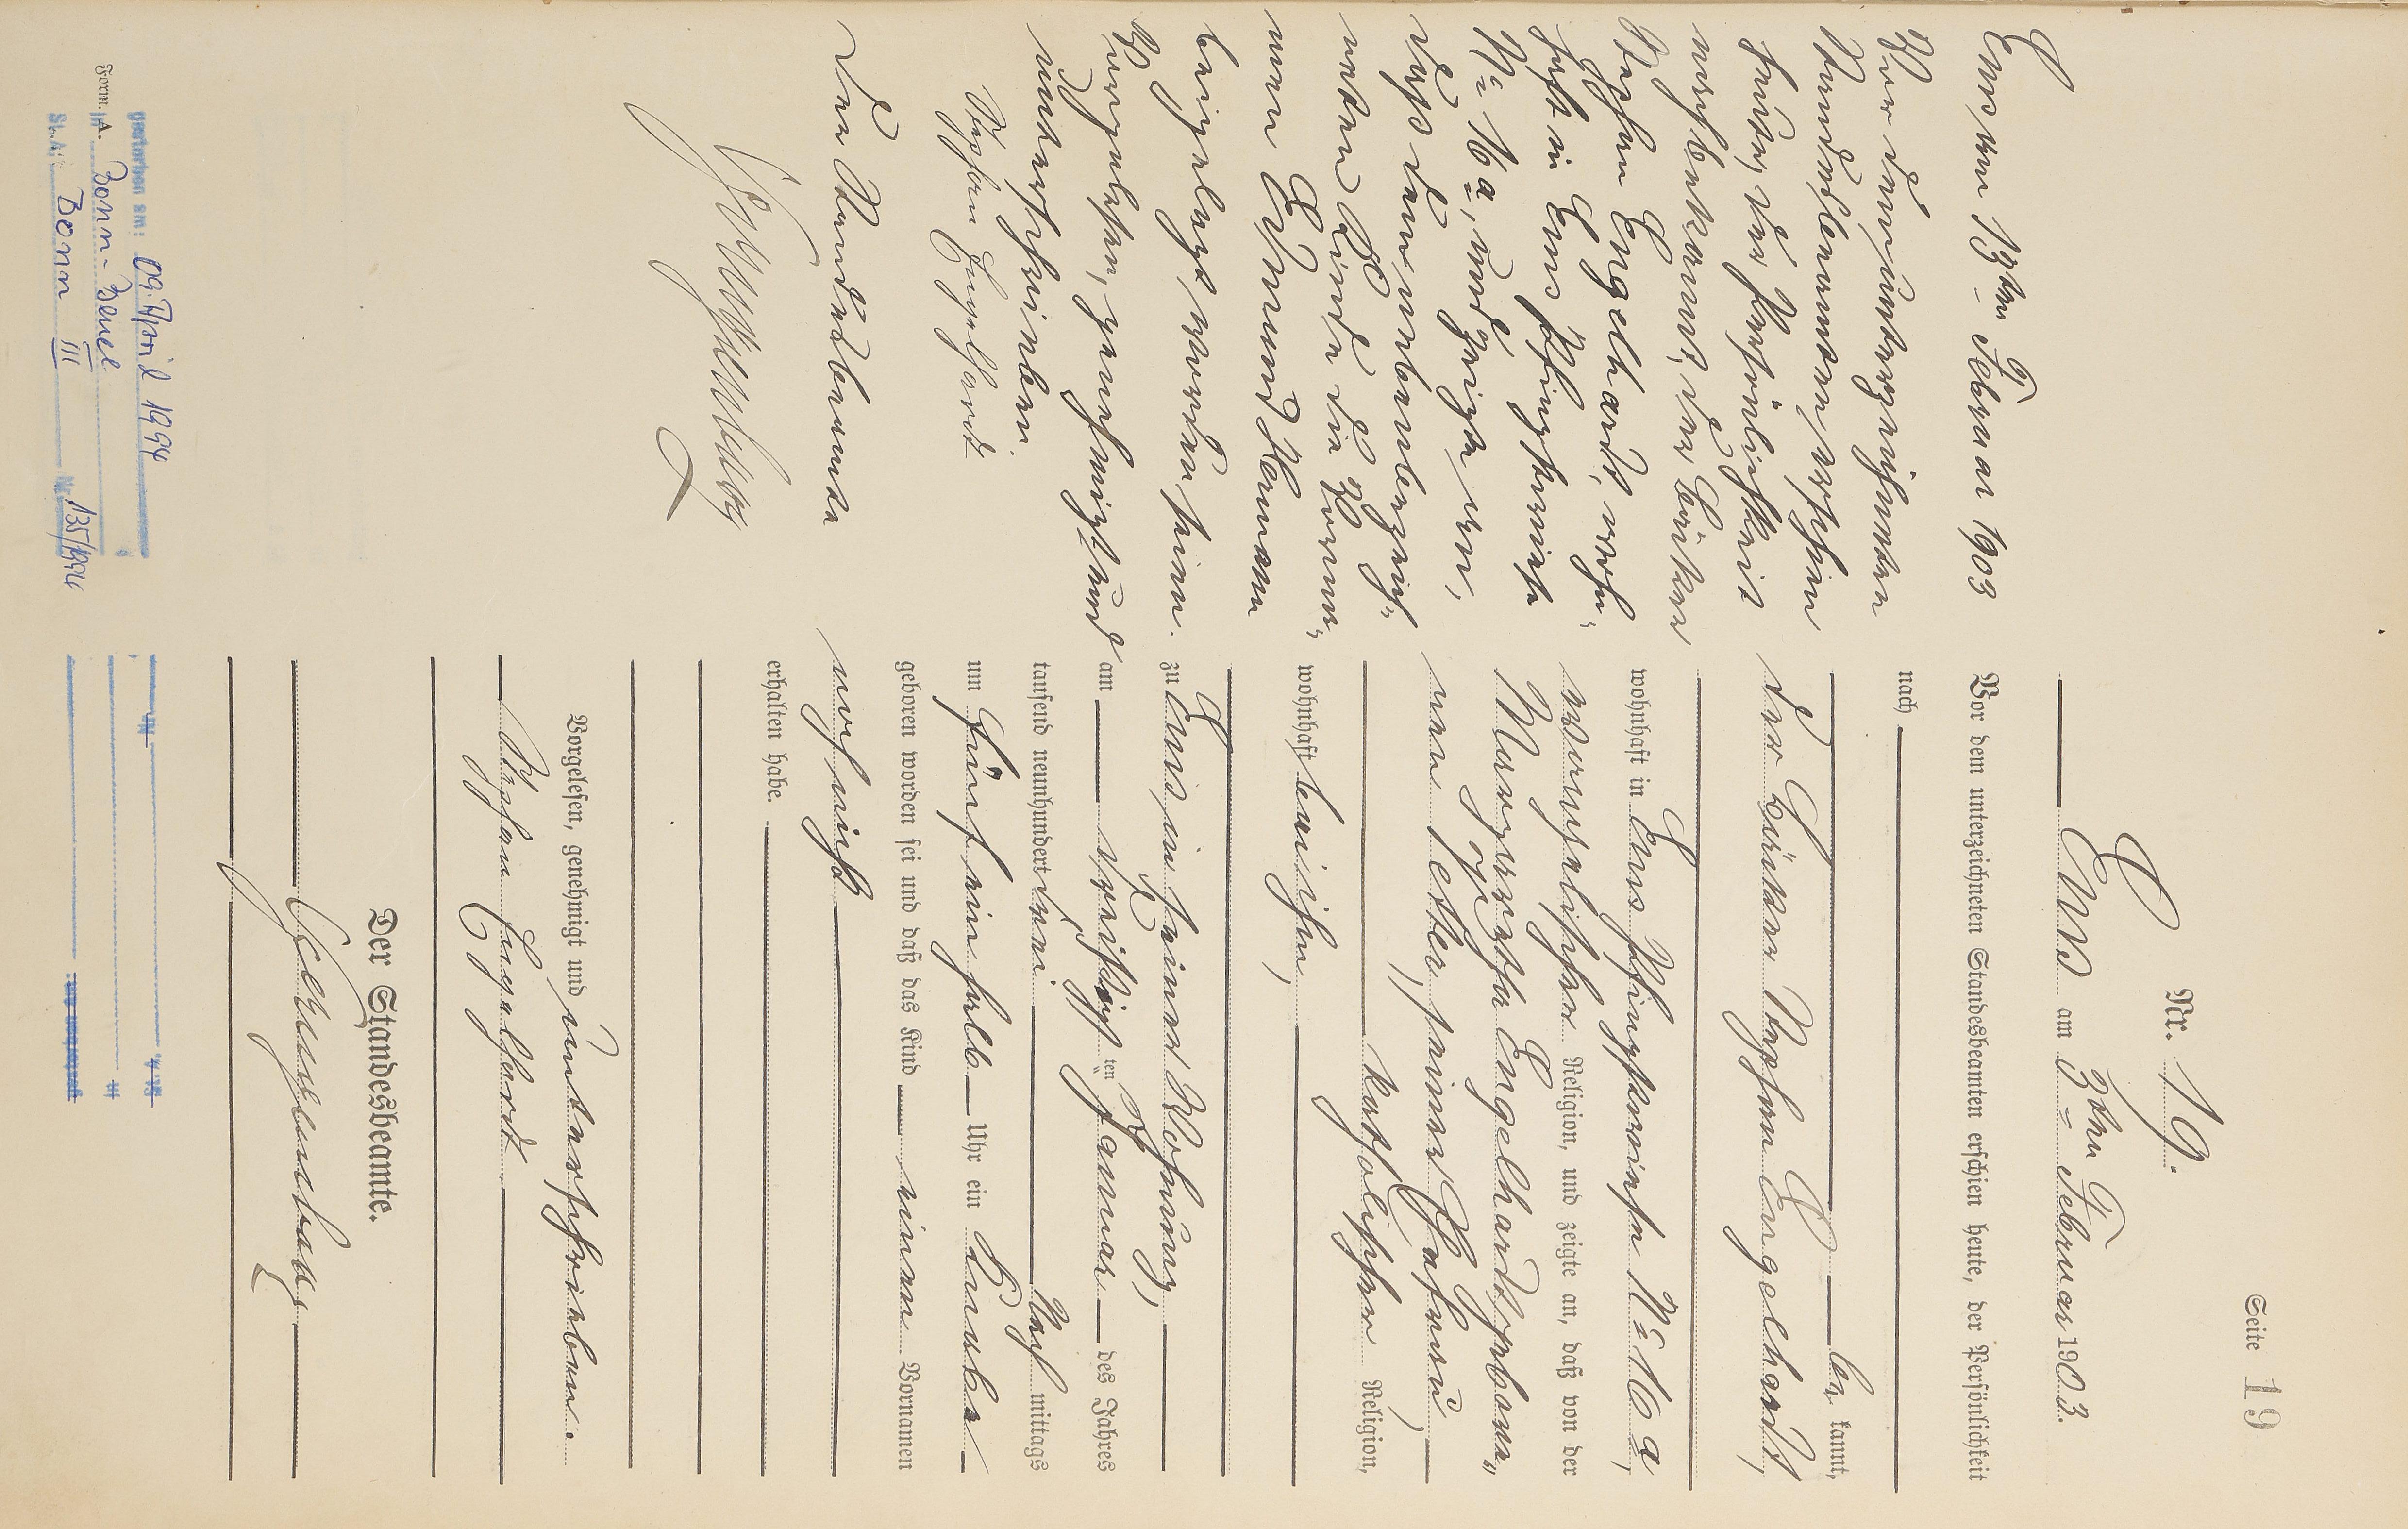 Seite 19
Nr. 19.
Ems am 3ten Februar 1903.
Vor dem unterzeichneten Standesbeamten erschien heute, der Persönlichkeit
nach
be kannt,
der Küster Stephan Engelhardt,
wohnhaft in Ems Pfingstwiese No 16a,
evangelischer Religion, und zeigte an, daß von der
Margarethe Engelhardt, gebore-
nen seiner Ehefrau,
katholischer Religion,
wohnhaft bei ihm,
zu Ems, in seiner Wohnung,
am dreißigsten Januar des Jahres
tausend neunhundert drei Nach mittags
um fünf ein halb Uhr ein Knabe
geboren worden sei und daß das Kind einen Vornamen
noch nicht
erhalten habe.
Vorgelesen, genehmigt und unterschrieben.
Stephan Engelhardt
Der Standesbeamte.
Ems am 13ten Februar 1903
Vor dem unterzeichneten
Standesbeamten erschien
heute, der Persönlichkeit
nach bekannt, der Küster
Stephan Engelhardt, wohn-
haft in Ems Pfingstwiese
No 16a, und zeigte an,
daß dem nebenbezeich-
neten Kinde die Vorna-
men Edmund Hermann
beigelegt worden seien.
Vorgelesen, genehmigt und
unterschrieben.
Stephan Engelhardt
Der Standesbeamte
gestorben am: 09. April 1994
Form. A. in Bonn-Beuel
St.A.: Bonn III Nr. 135/1994